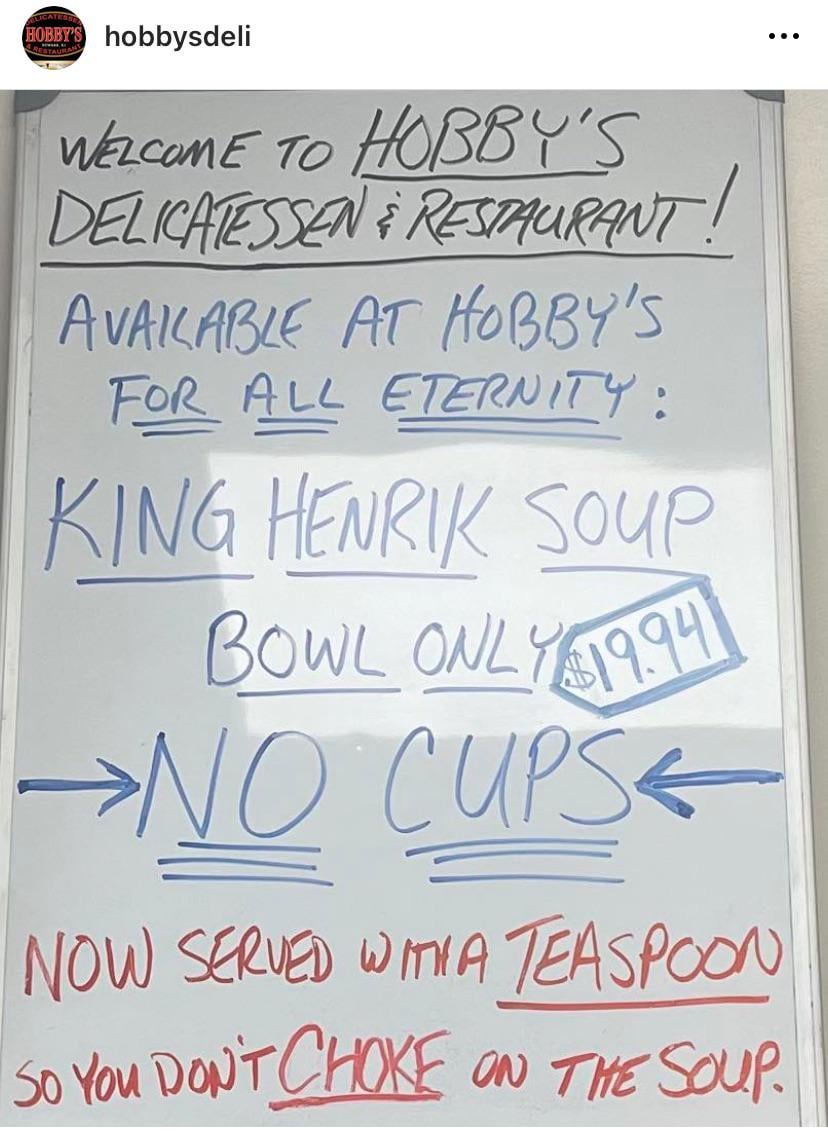 DELICATESSEN
HOBBY'S
NEWARK, NJ
& RESTAURANT
hobbysdeli
WELCOME TO HOBBY'S
DELICATESSEN & RESTAURANT!
AVAILABLE AT HOBBY'S
FOR ALL ETERNITY:
KING HENRIK SOUP
BOWL ONLY $19.94
NO CUPS
NOW SERVED WITH A TEASPOON
SO YOU DON'T CHOKE ON THE SOUP.